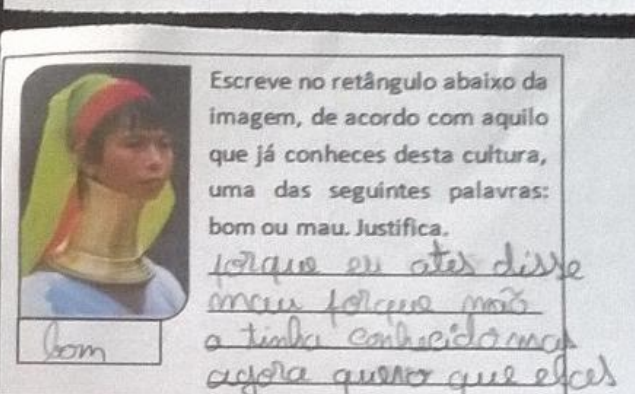 Escreve no retângulo abaixo da
imagem, de acordo com aquilo
que já conheces desta cultura,
uma das seguintes palavras:
bom ou mau. Justifica.
porque eu ates disse
mau porque não
a tinha conhecido mas
agora quero que
bom